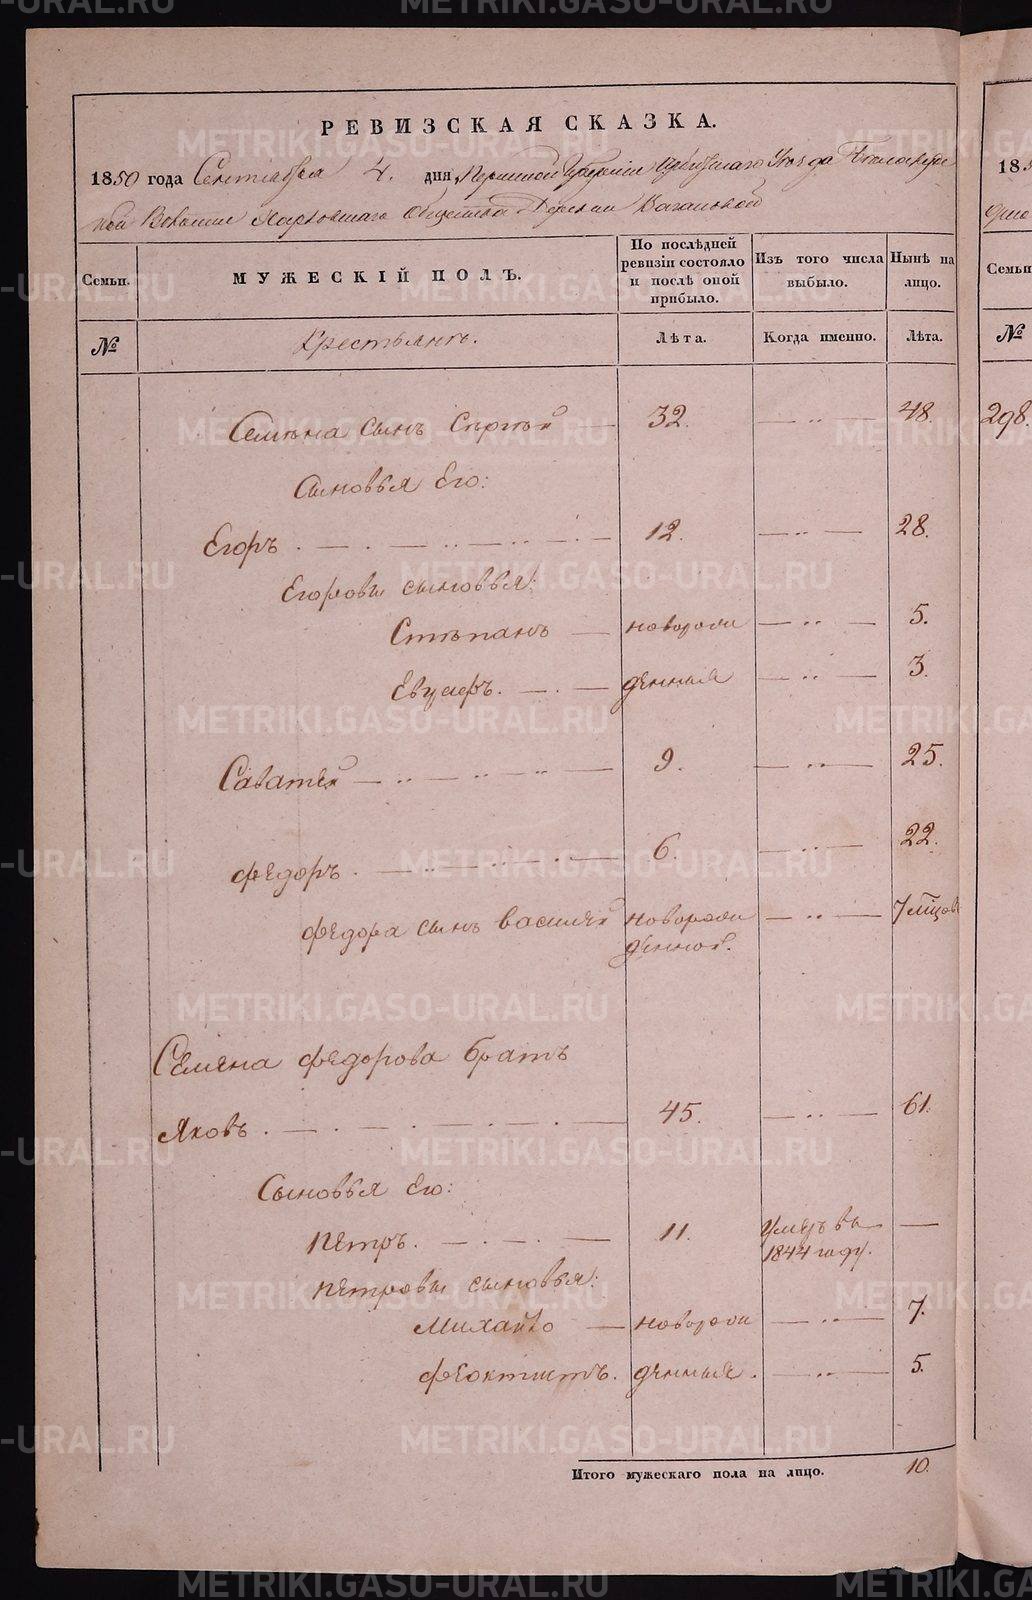 РЕВИЗСКАЯ СКАЗКА.
1850 года Сентября 4. дня, Пермской Губернии Ирбитскаго Уезда
Волости Харловскаго Общества Деревни Вагановой
Семьи. МУЖЕСКІЙ ПОЛЪ. По послѣдней ревизіи состояло и послѣ оной прибыло. Изъ того числа выбыло. Нынѣ на лицо.
№ Крестьянъ. Лѣта. Когда именно. Лѣта.
Семена сынъ Сергѣй — 32. — ‥ — 48.
Сыновья Его:
Егоръ . — . — ‥ — ‥ — . — 12. — ‥ — 28.
Егоровы сыновья:
Степанъ — новорож — ‥ — 5.
Евграфъ. — . — денныя — ‥ — 3.
Саватей — ‥ — ‥ — ‥ — 9. — ‥ — 25.
Федоръ . — ‥ — ‥ — . — 6. — ‥ — 22.
Федора сынъ Василей новорож — ‥ — 7 мѣсцовъ
денной.
Семена Федорова братъ
Яковъ . — . — . — . — . — 45. — ‥ — 61.
Сыновья Его:
Петръ. — . — . — 11. Умеръ въ —
1844 году.
Петровы сыновья:
Михайло — новорож — ‥ — 7.
Феоктистъ. денныя. — ‥ — 5.
Итого мужескаго пола на лицо. 10.
185
Семьи
№
298.
METRIKI.GASO-URAL.RU